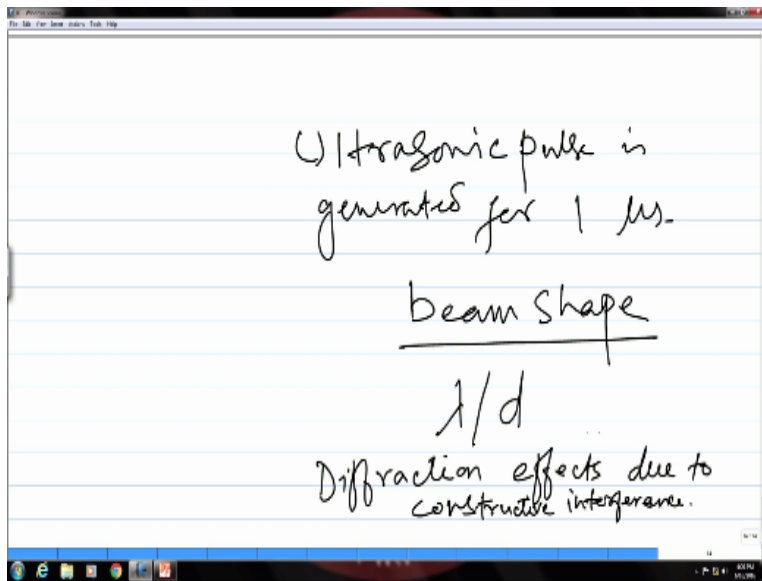 File Edit View Insert Actions Tools Help
Ultrasonic pulse is
generated for 1 µs.
beam shape
λ/d
Diffraction effects due to
constructive interference.